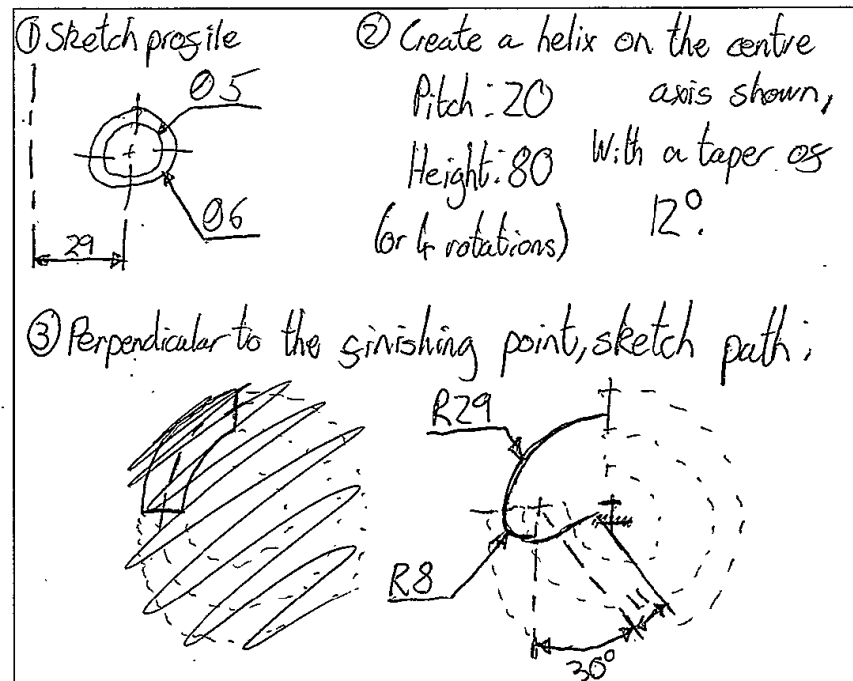 ① Sketch profile
Ø5
Ø6
29
② Create a helix on the centre
axis shown,
Pitch: 20
With a taper of
Height: 80
12°.
(or 4 rotations)
③ Perpendicular to the finishing point, sketch path;
R29
R8
30°